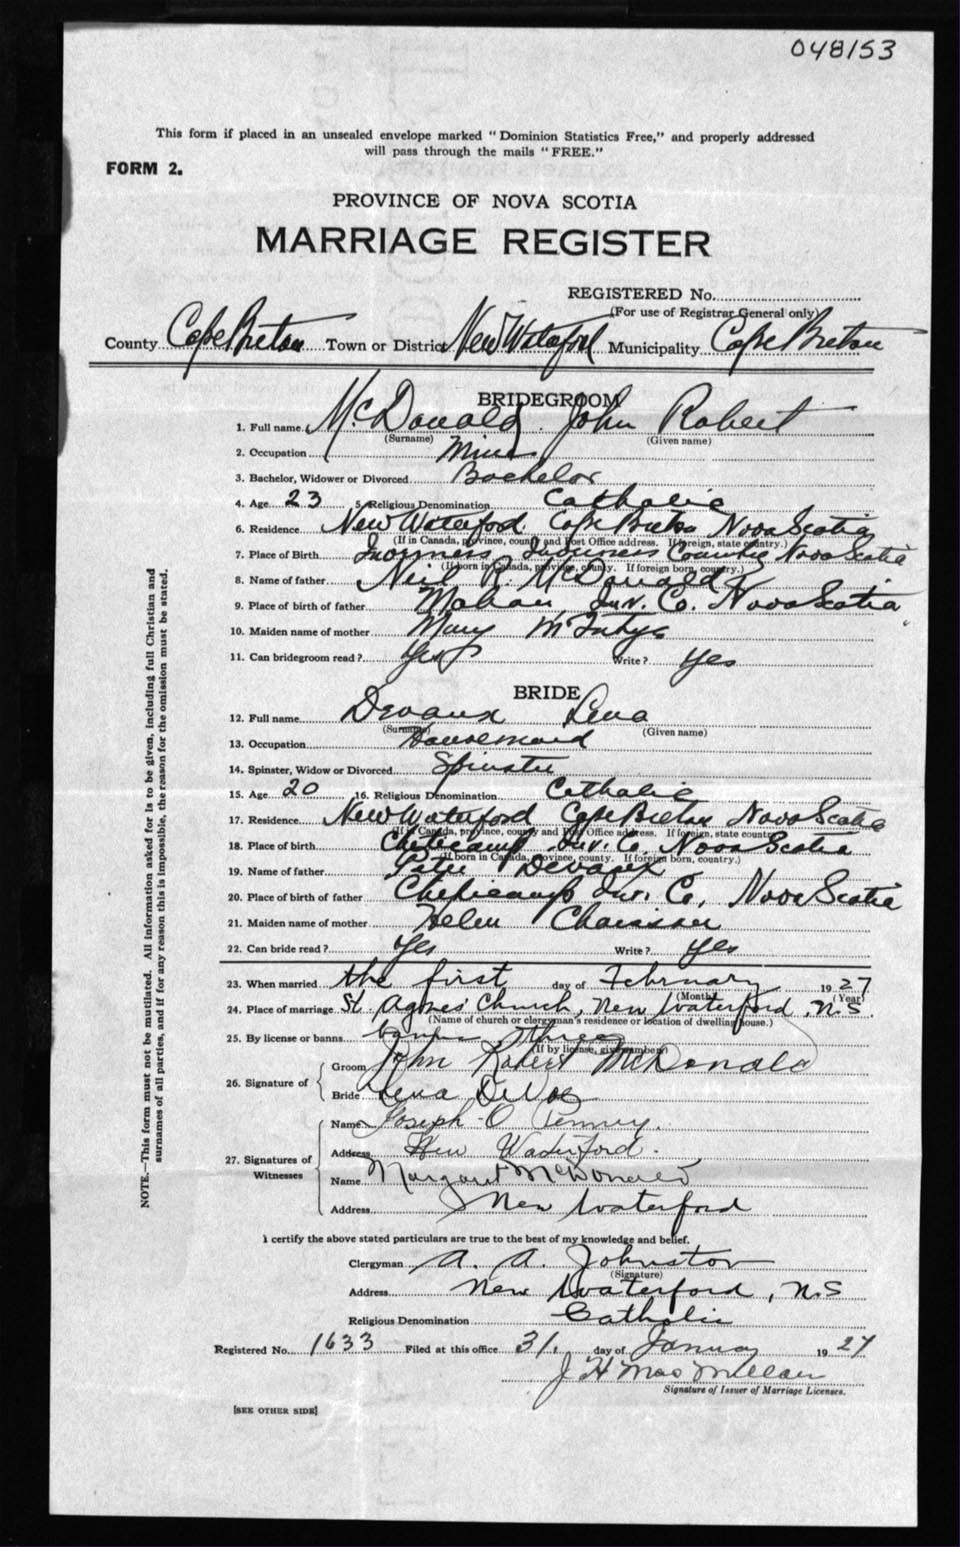 048153
This form if placed in an unsealed envelope marked "Dominion Statistics Free," and properly addressed
will pass through the mails "FREE."
FORM 2.
PROVINCE OF NOVA SCOTIA
MARRIAGE REGISTER
REGISTERED No.
(For use of Registrar General only)
County Cape Breton Town or District New Waterford Municipality Cape Breton
BRIDEGROOM
1. Full name McDonald John Robert
(Surname) (Given name)
2. Occupation Miner
3. Bachelor, Widower or Divorced Bachelor
4. Age 23 5. Religious Denomination Catholic
6. Residence New Waterford Cape Breton Nova Scotia
(If in Canada, province, county and Post Office address. If foreign, state country.)
7. Place of Birth Inverness Inverness County Nova Scotia
(If born in Canada, province, county. If foreign born, country.)
8. Name of father Neil R. McDonald
9. Place of birth of father Mabou, Inv. Co. Nova Scotia
10. Maiden name of mother Mary McIntyre
11. Can bridegroom read? Yes Write? Yes
BRIDE
12. Full name Devaux Lena
(Surname) (Given name)
13. Occupation Housemaid
14. Spinster, Widow or Divorced Spinster
15. Age 20 16. Religious Denomination Catholic
17. Residence New Waterford Cape Breton Nova Scotia
(If in Canada, province, county and Post Office address. If foreign, state country.)
18. Place of birth Cheticamp Inv. Co. Nova Scotia
(If born in Canada, province, county. If foreign born, country.)
19. Name of father Peter Devaux
20. Place of birth of father Cheticamp Inv. Co. Nova Scotia
21. Maiden name of mother Helen Chaisson
22. Can bride read? Yes Write? Yes
23. When married the first day of February 1927
(Month) (Year)
24. Place of marriage St. Agnes' Church, New Waterford, N.S.
(Name of church or clergyman's residence or location of dwelling house.)
25. By license or banns banns three
(If by license, give number)
26. Signature of
Groom John Robert McDonald
Bride Lena DeVoe
27. Signatures of Witnesses
Name Joseph O Penney.
Address New Waterford.
Name Margaret McDonald
Address New Waterford
I certify the above stated particulars are true to the best of my knowledge and belief.
Clergyman A. A. Johnston
(Signature)
Address New Waterford, N.S
Religious Denomination Catholic
Registered No. 1633 Filed at this office 31. day of January 1927
J H MacMillan
Signature of Issuer of Marriage Licenses.
[SEE OTHER SIDE]
NOTE.—This form must not be mutilated. All information asked for is to be given, including full Christian and
surnames of all parties, and if for any reason this is impossible, the reason for the omission must be stated.